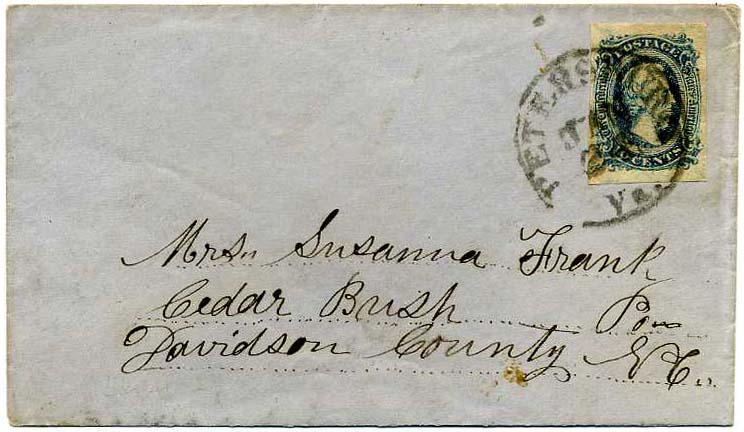 POSTAGE
PETERSBURG
CENTS
Va.
Mrs. Susanna Frank
Cedar Bush Po
Davidson County N.C.